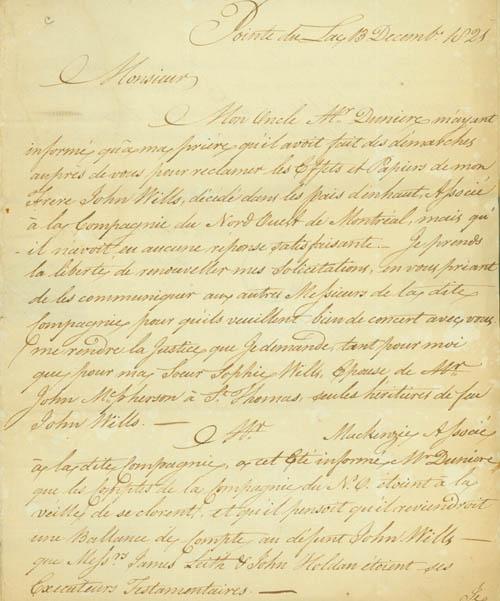 Pointe du Lac 13 Decembr. 1821
Monsieur
Mon Oncle Mr. Duniere m'ayant
informé, qu'à ma prière, qu'il avoit fait des démarches
auprès de vous pour reclamer les Effets et Papiers de mon
Frere John Wills, décédé dans les païs d'enhaut, Associé
à la Compagnie du Nord Ouest de Montréal, mais qu'
il n'avoit eu aucune reponse satisfaisante. — Je prends
la liberté de renouveller mes Solicitations, en vous priant
de les communiquer aux autres Messieurs de la dite
Compagnie pour qu'ils veuillent bien de concert avec vous
me rendre la Justice que Je demande, tant pour moi
que pour ma Sœur Sophie Wills, Epouse de Mr.
John McPherson à St. Thomas, seules héritières de feu
John Wills. —
Mr. Mackenzie Associé
à la dite Compagnie, a cet Eté informé Mr Duniere
que les Compts de la Compagnie du N.O. étoient à la
veille de se clorent, et qu'il pensoit qu'il reviendroit
une Ballance de Compte au défunt John Wills —
que Messrs. James Leith & John Holdan étoient ses
Executeurs Testamentaires. —
Je